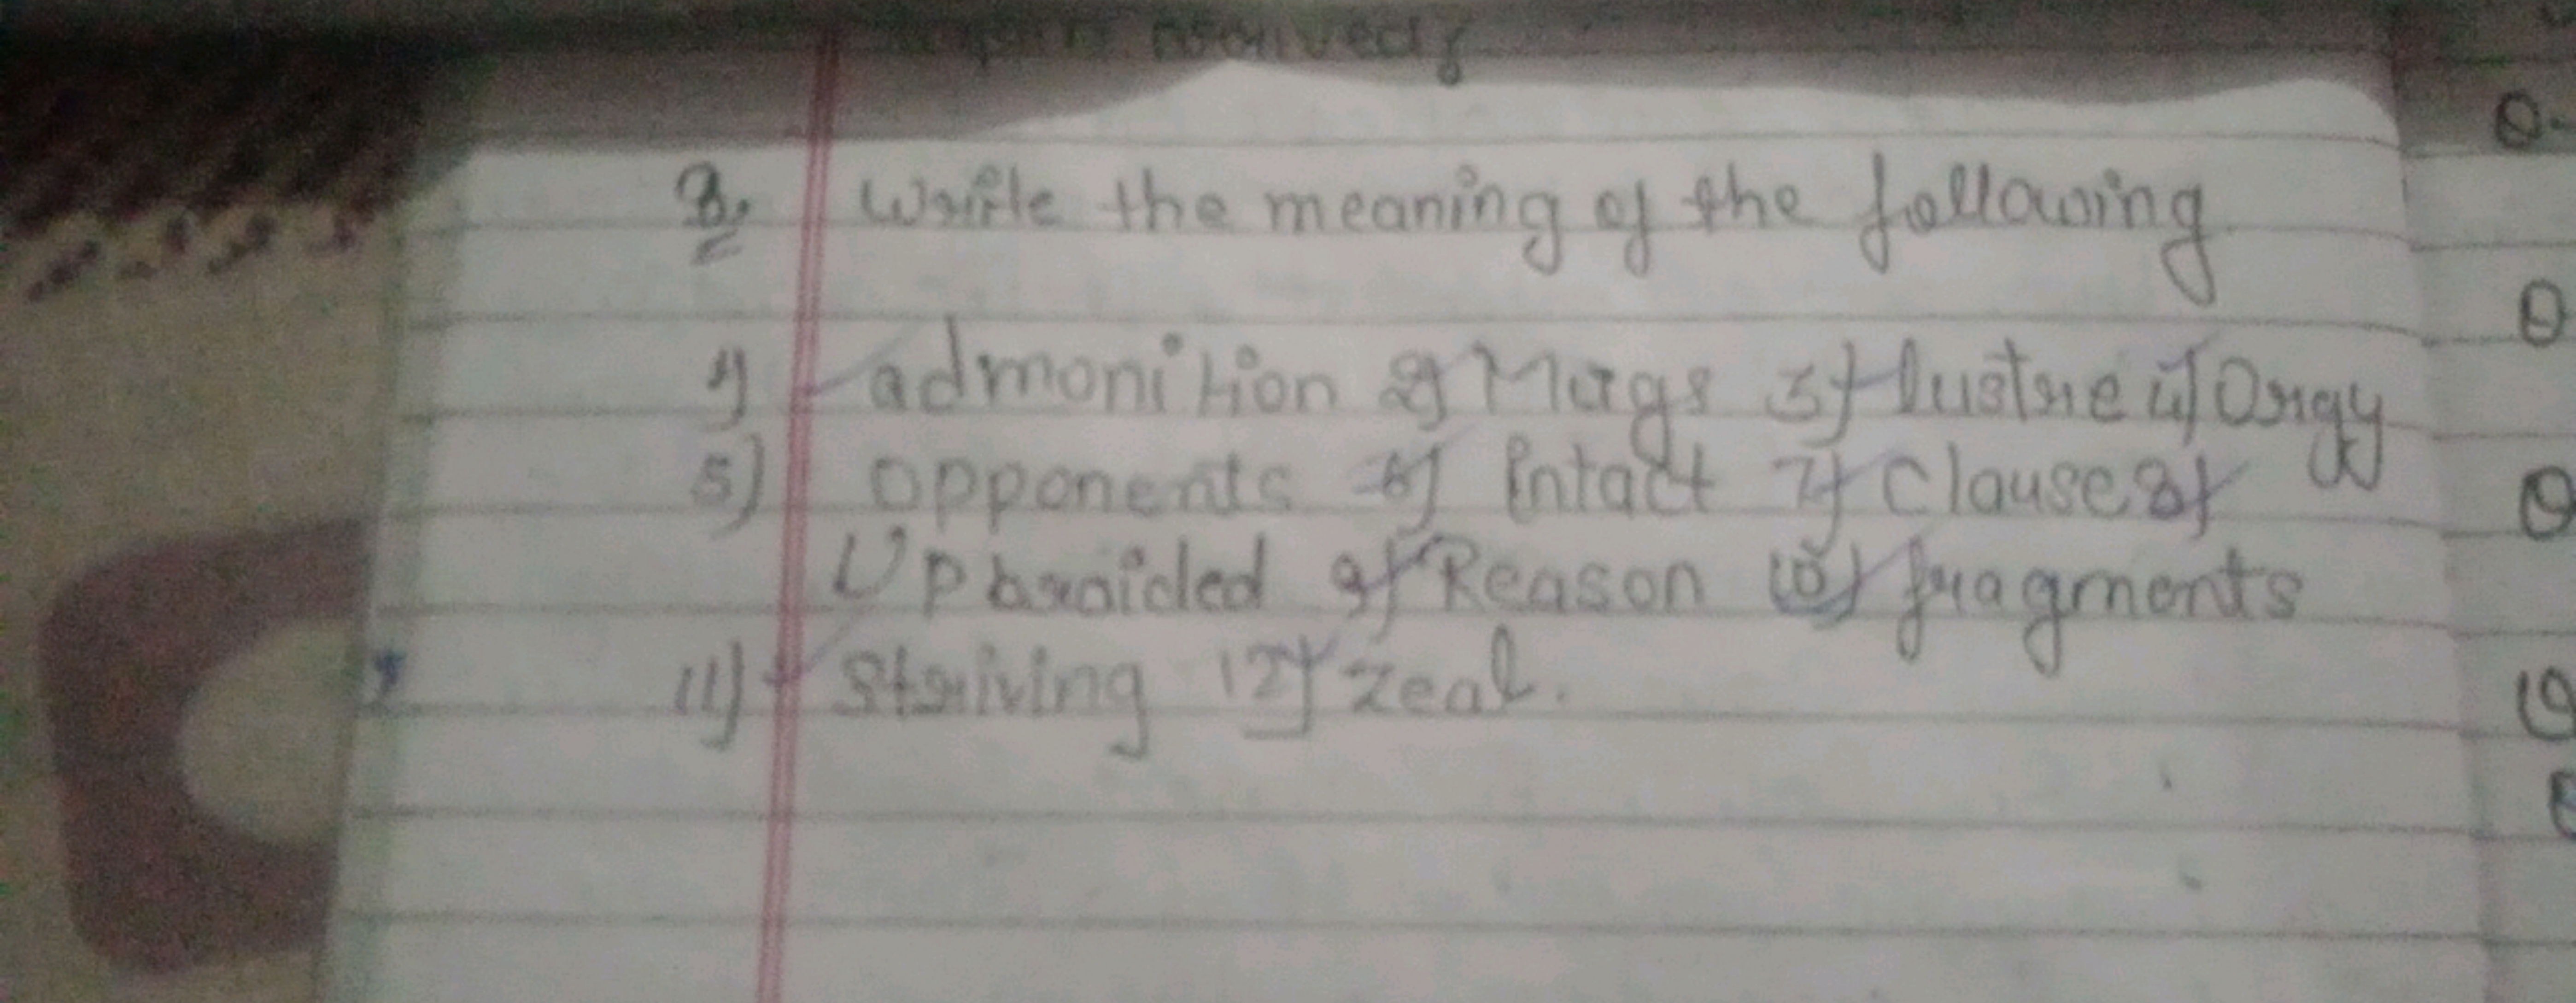 3. Write the meaning of the following
1) admonition 2) Mugs 3) lustre 4) Orgy
5) Opponents 6) Intact 7) Clause 8)
Upbraided 9) Reason 10) fragments
11) Striving 12) Zeal.
Q.
Q
Q
Q